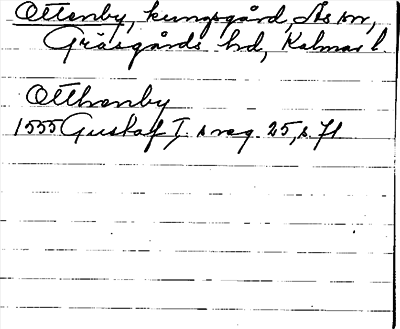 Ottenby, kungsgård, Ås sn,
Gräsgårds hd, Kalmar l.
Otthenby
1555 Gustaf I. s reg. 25, s. 71